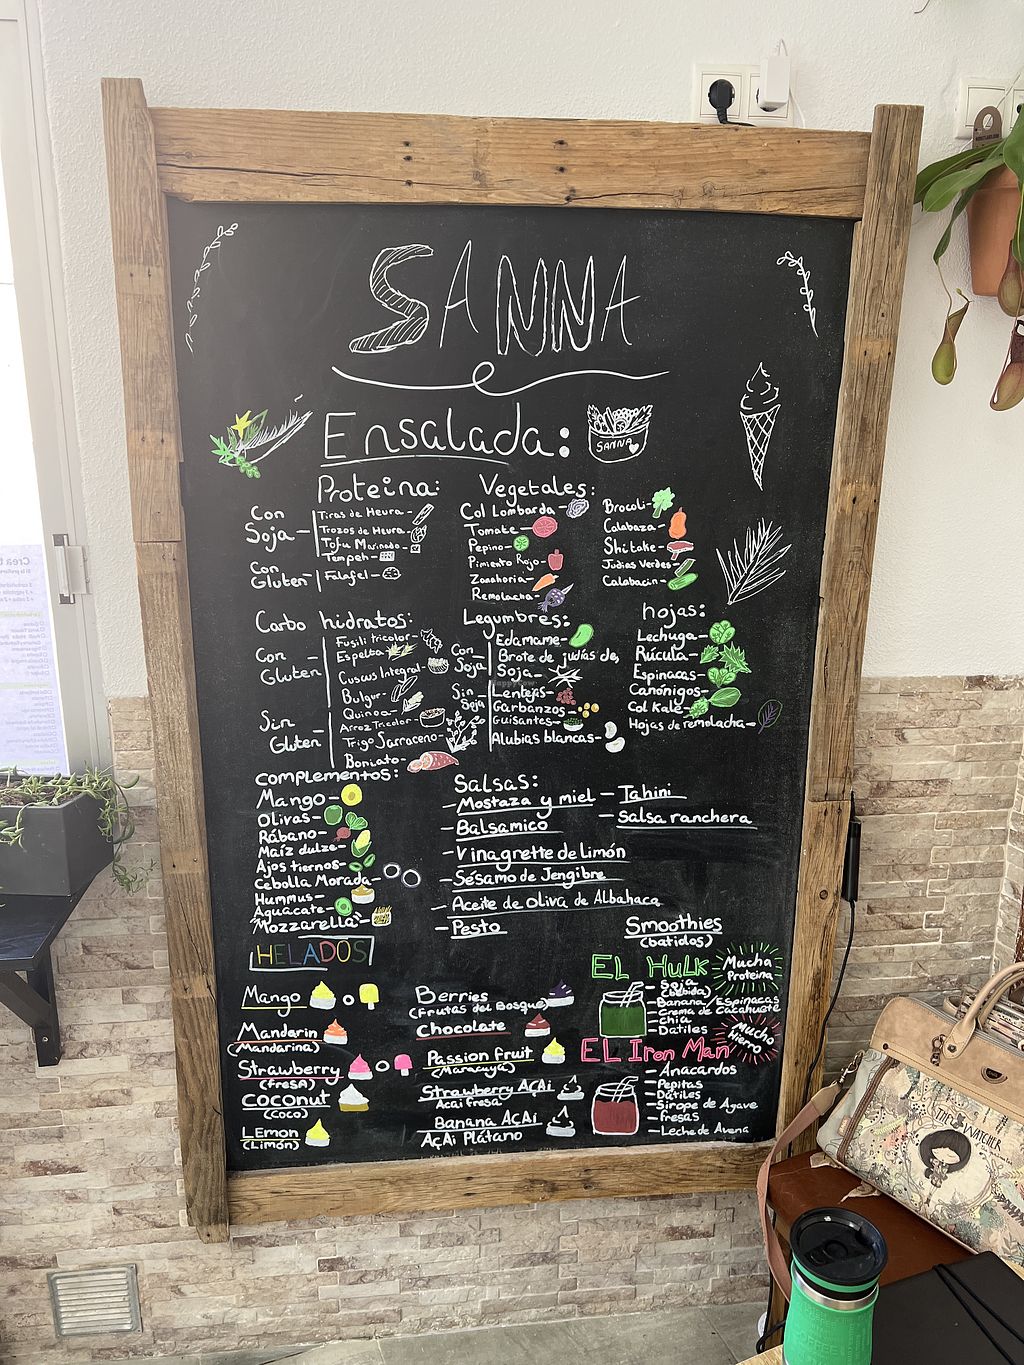 SANNA
Ensalada:
SANNA
Proteina:
Con Soja
Tiras de Heura
Trozos de Heura
Tofu Marinado
Tempeh
Con Gluten
Falafel
Vegetales:
Col Lombarda
Tomate
Pepino
Pimiento Rojo
Zanahoria
Remolacha
Brocoli
Calabaza
Shitake
Judias Verdes
Calabacin
Carbo hidratos:
Con Gluten
Fusili tricolor
Espelta
Cuscus Integral
Bulgur
Sin Gluten
Quinoa
Arroz Tricolor
Trigo Sarraceno
Boniato
Legumbres:
Con Soja
Edamame
Brote de judías de,
Soja
Sin Soja
Lentejas
Garbanzos
Guisantes
Alubias blancas
hojas:
Lechuga
Rúcula
Espinacas
Canónigos
Col Kale
Hojas de remolacha
complementos:
Mango
Olivas
Rábano
Maíz dulze
Ajos tiernos
Cebolla Morada
Hummus
Aguacate
"Mozzarella"
Salsas:
- Mostaza y miel
- Balsamico
- Vinagrette de Limón
- Sésamo de Jengibre
- Aceite de oliva de Albahaca
- Pesto
- Tahini
- Salsa ranchera
HELADOS
Mango
o
Mandarin
(Mandarina)
Strawberry
o
(fresa)
Coconut
(Coco)
Lemon
(Limón)
Berries
(Frutas del Bosque)
Chocolate
Passion fruit
(Maracuya)
Strawberry AÇAi
Acai fresa
Banana AÇAi
AÇAi Plátano
Smoothies
(batidos)
EL HuLK
Mucha Proteina
- Soja
(bebida)
- Banana/Espinacas
- Crema de Cacahuete
- Chia
- Datiles
Mucho Hierro
EL Iron Man
- Anacardos
- Pepitas
- Dátiles
- Sirope de Agave
- fresas
- Leche de Avena
THE WATCHER